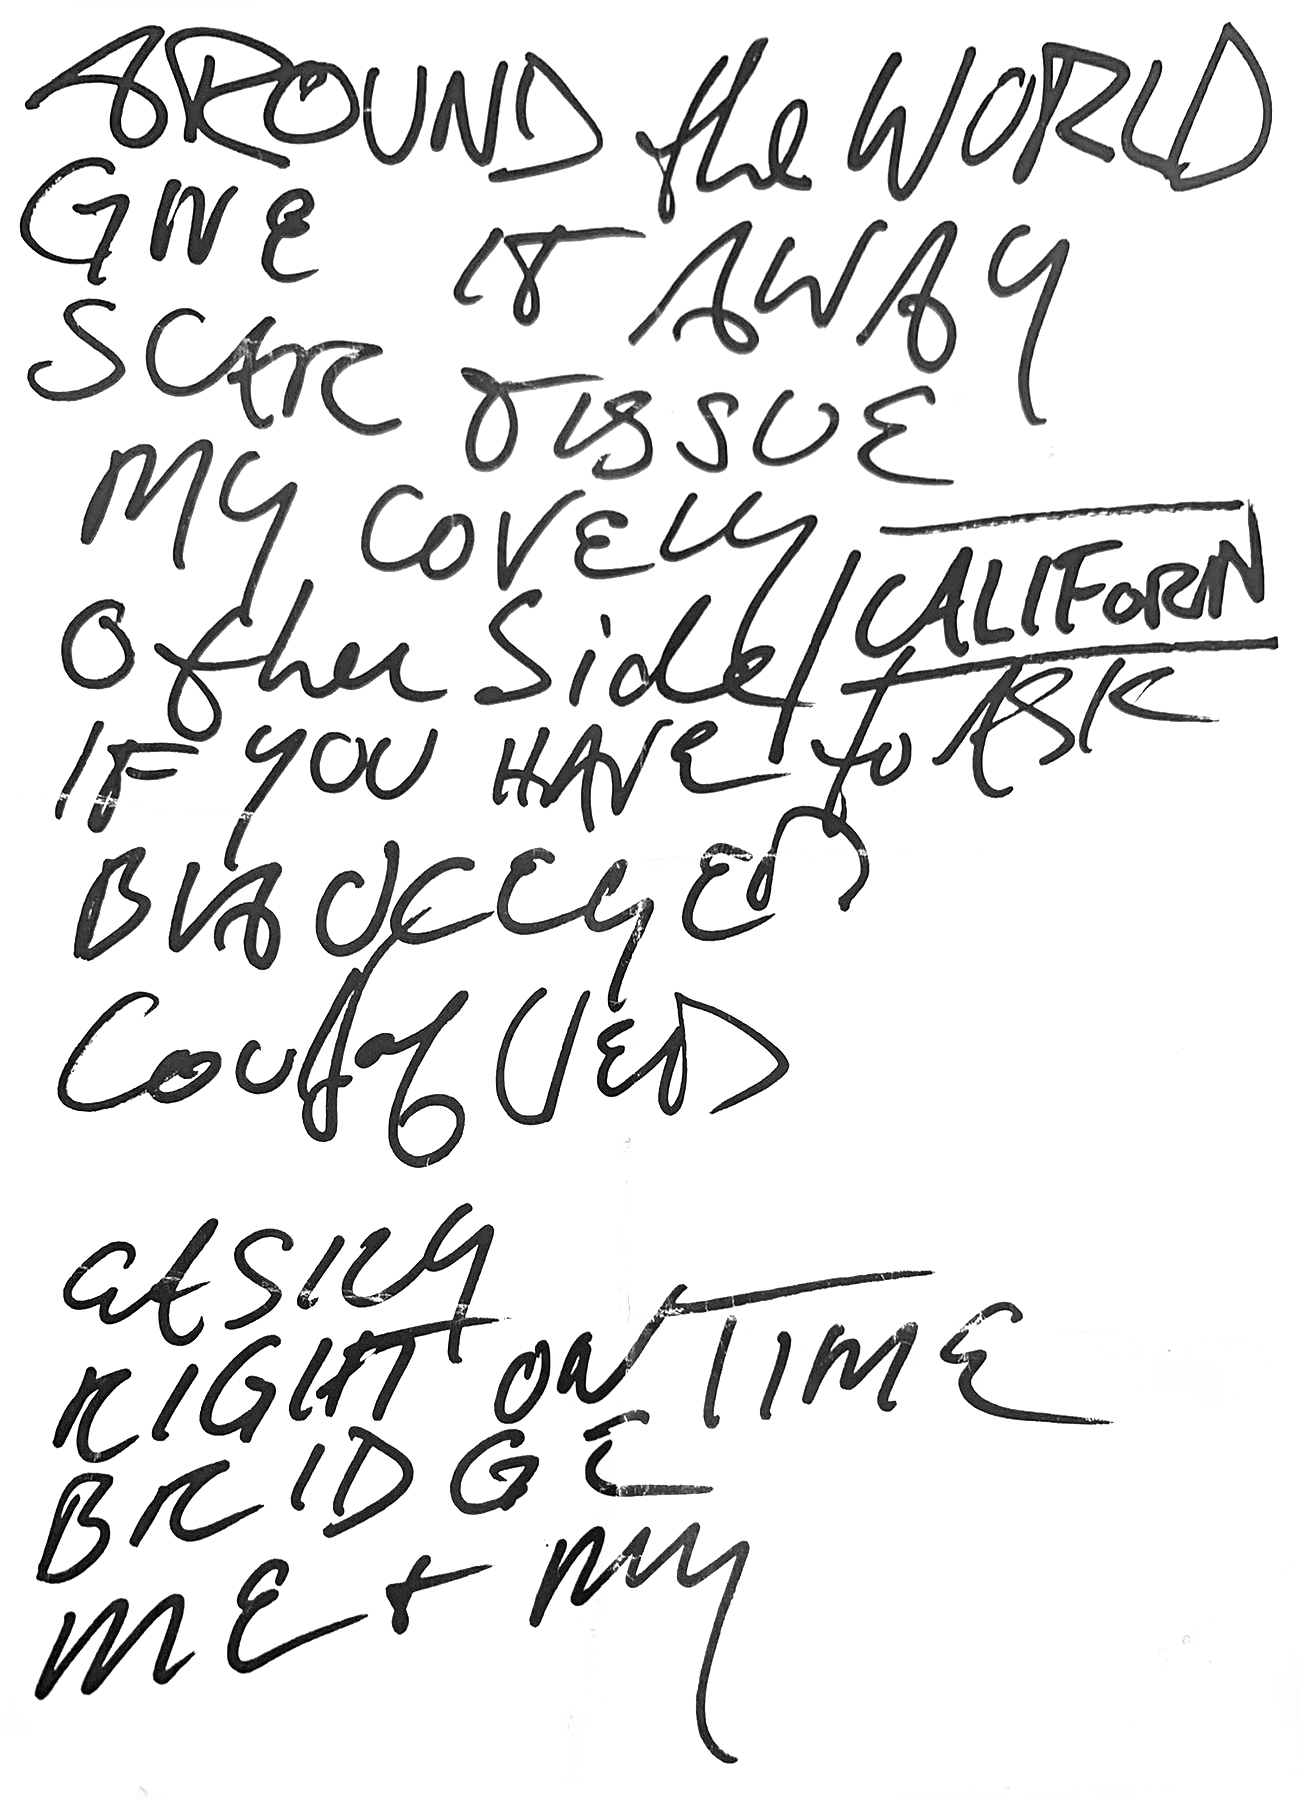 AROUND the WORLD
GIVE IT AWAY
SCAR TISSUE
MY LOVELY
Other Side / CALIFORN
IF YOU HAVE to ASK
EASILY
RIGHT ON TIME
BRIDGE
ME + MY